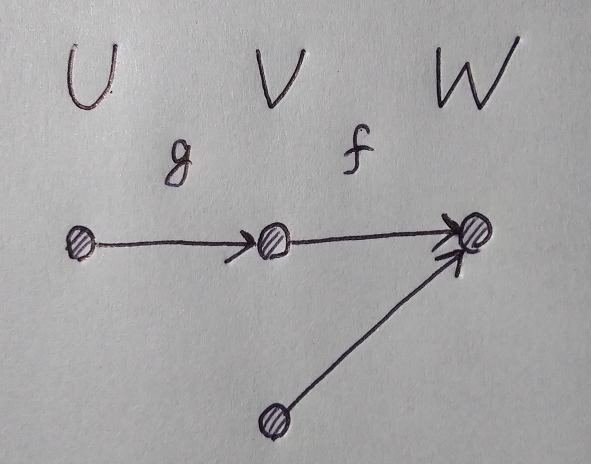 U V W
g f